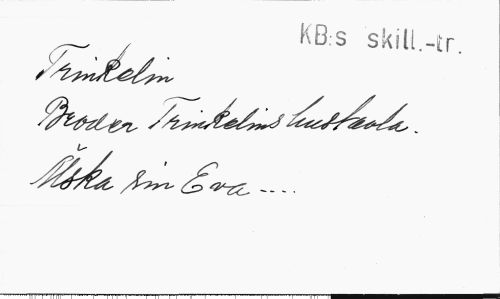 KB:s skill.-tr.
Trinkelin
Broder Trinkelins hustavla.
Älska sin Eva ....